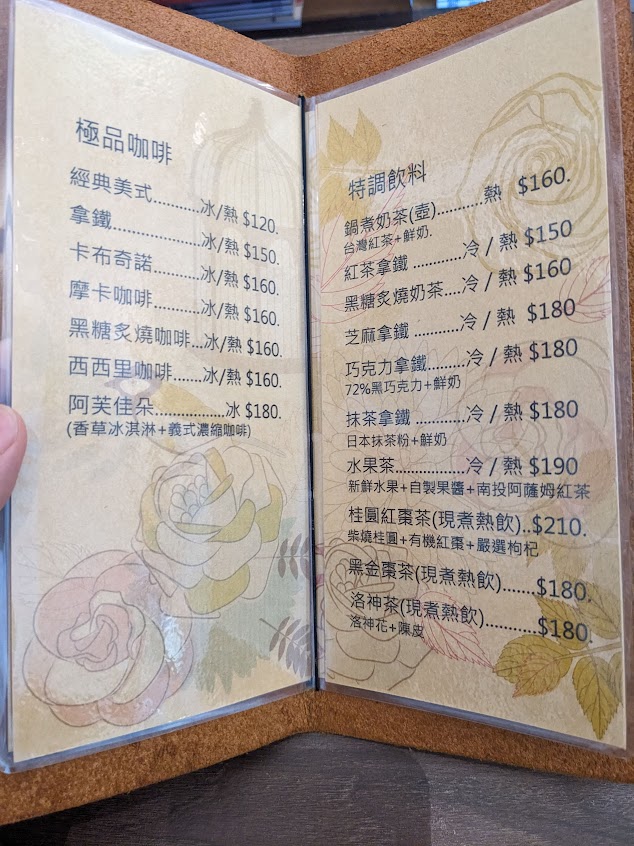 極品咖啡
經典美式..........冰/熱 $120.
拿鐵...............冰/熱 $150.
卡布奇諾......冰/熱 $160.
摩卡咖啡.......冰/熱 $160.
黑糖炙燒咖啡...冰/熱 $160.
西西里咖啡......冰/熱 $160.
阿芙佳朵...............冰 $180.
(香草冰淇淋+義式濃縮咖啡)
特調飲料
鍋煮奶茶(壺)..........熱 $160.
台灣紅茶+鮮奶.
紅茶拿鐵 ............冷 / 熱 $150
黑糖炙燒奶茶....冷 / 熱 $160
芝麻拿鐵 ...........冷 / 熱 $180
巧克力拿鐵........冷 / 熱 $180
72%黑巧克力+鮮奶
抹茶拿鐵 ............冷 / 熱 $180
日本抹茶粉+鮮奶
水果茶...............冷 / 熱 $190
新鮮水果+自製果醬+南投阿薩姆紅茶
桂圓紅棗茶(現煮熱飲)..$210.
柴燒桂圓+有機紅棗+嚴選枸杞
黑金棗茶(現煮熱飲).......$180.
洛神茶(現煮熱飲)...........$180.
洛神花+陳皮